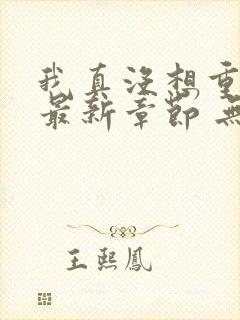 我真没想重
最新章节 无
王熙鳳